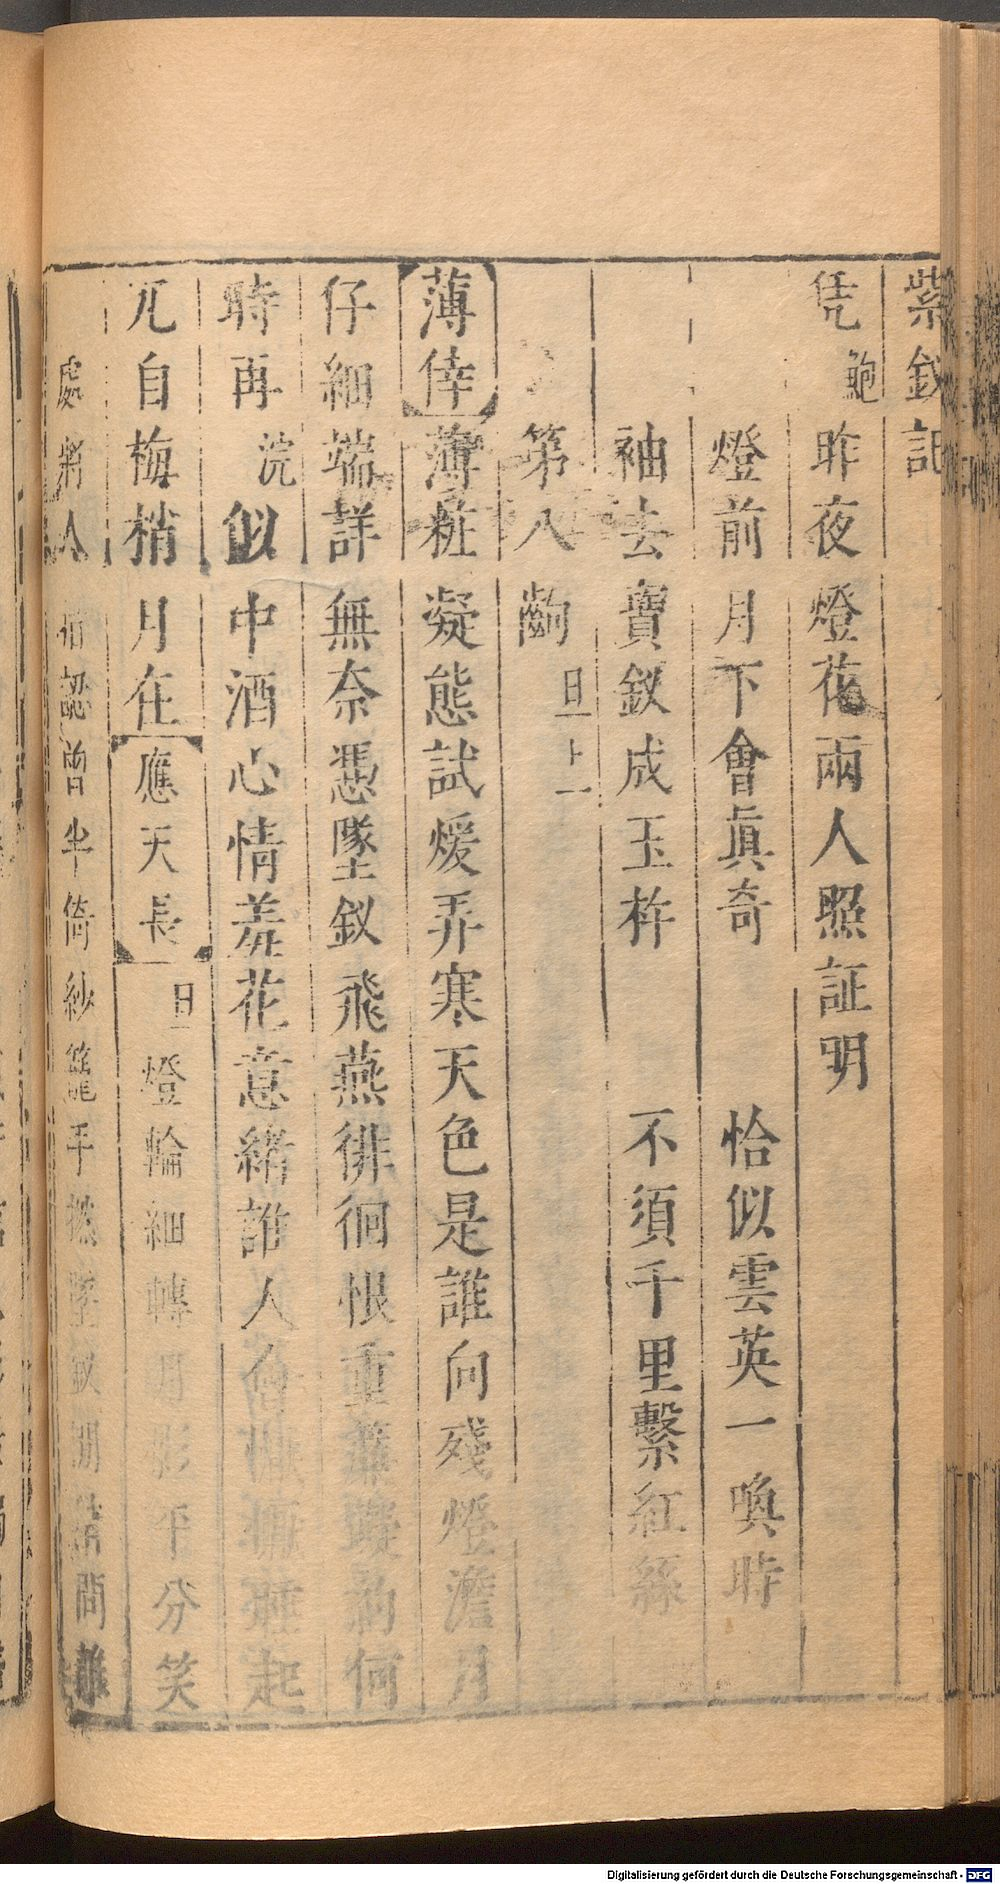 紫釵記
凭鮑昨夜燈花兩人照証明
燈前月下會眞奇　恰似雲英一喚時
袖去寶釵成玉杵　不須千里繫紅絲
第八齣旦上
薄倖薄粧凝態試煖弄寒天色是誰向殘燈澹月
仔細端詳無奈憑墜釵飛燕徘徊恨重簾何
時再浣似中酒心情羞花意緒誰人懨懨睡起
兀自梅梢月在應天長旦燈輪細轉月影平分笑
處將人認曾半倚紗籠手撚墜釵閒
Digitalisierung gefördert durch die Deutsche Forschungsgemeinschaft - DFG